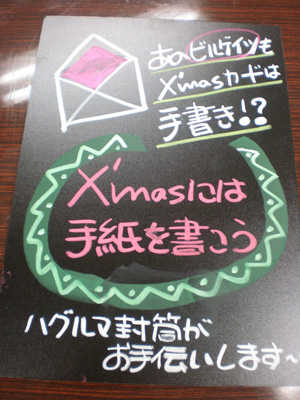 あのビルゲイツも
X'masカードは
手書き!?
X'masには
手紙を書こう
ハグルマ封筒が
お手伝いします~